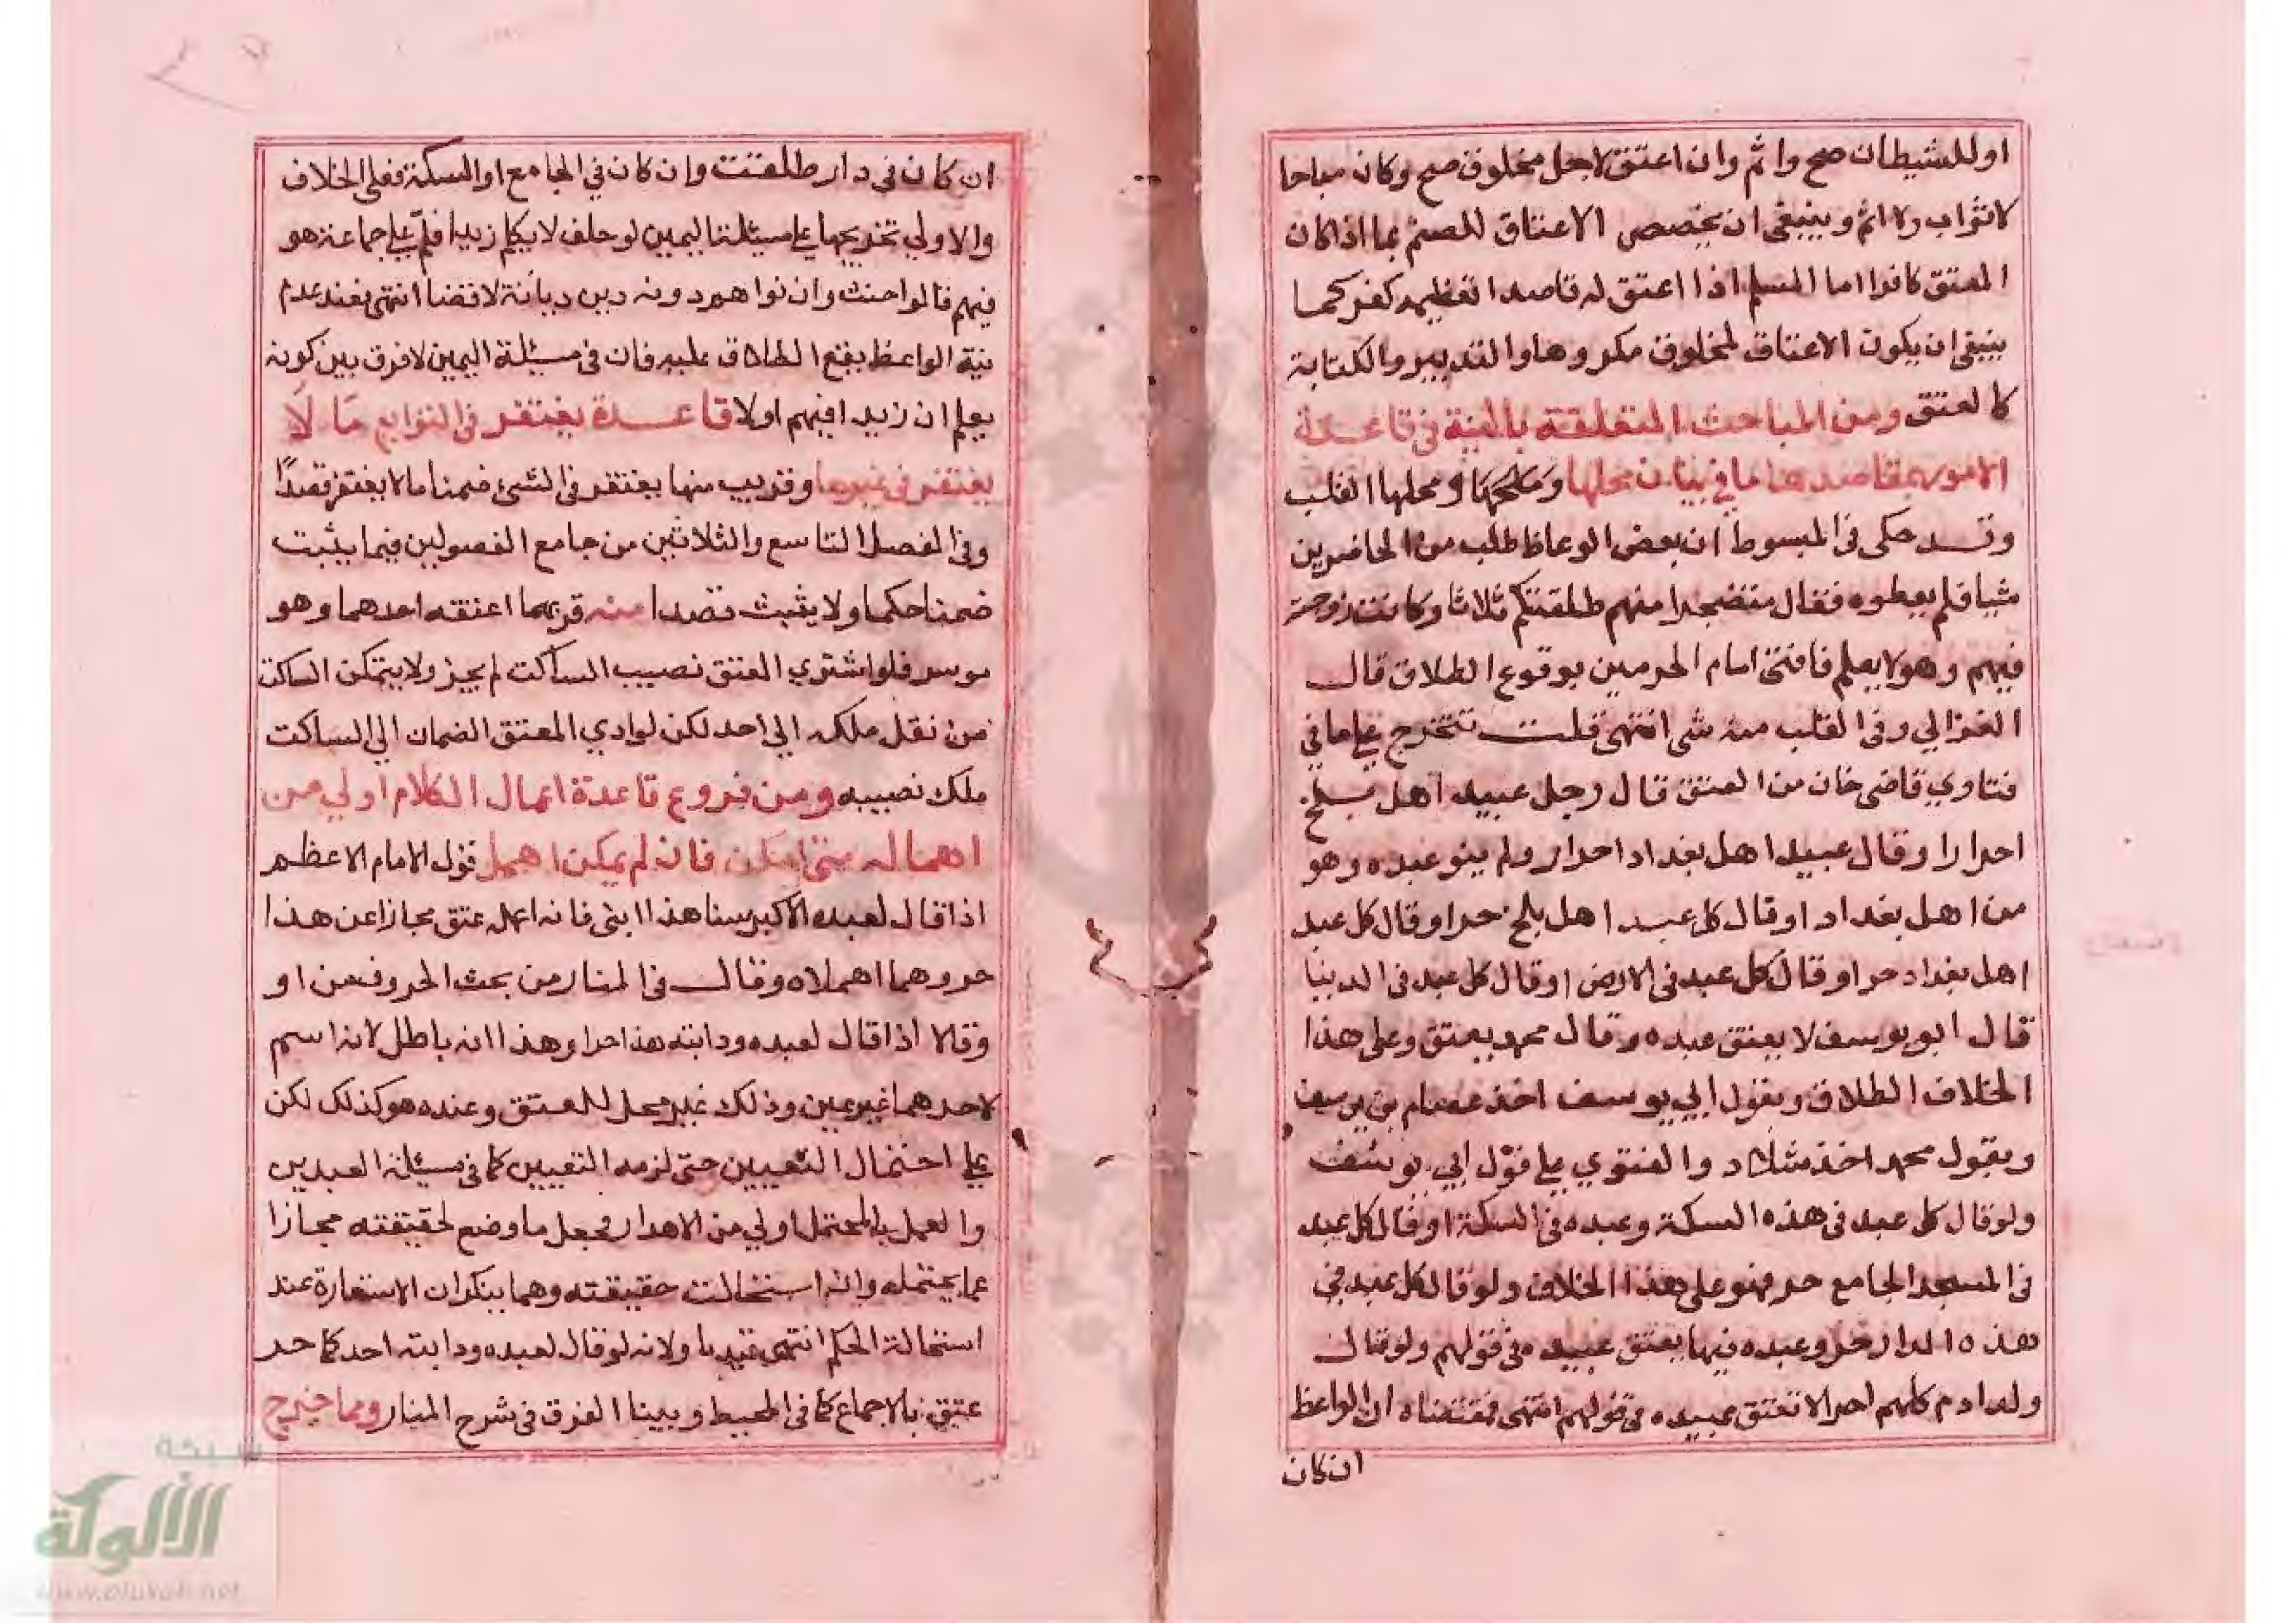 او للشيطان صح واثم وان اعتق لاجل مخلوق صح وكان مباحا
لا ثواب ولا اثم وينبغي ان يخصص الاعتاق للصنم بما اذا كان
المعتق كافرا اما المسلم اذا اعتق له قاصدا تعظيمه كفر كما
ينبغي ان يكون الاعتاق لمخلوق مكروها والتدبير والكتابة
كالعتق ومن المباحث المتعلقة بالنية في قاعدة
الامور بمقاصدها ما في بيان محلها ومحلها القلب
وقد حكى في المبسوط ان بعض الوعاظ طلب من الحاضرين
شيا فلم يعطوه فقال متضجرا منهم طلقتكم ثلاثا وكانت زوجته
فيهم وهو لا يعلم فافتى امام الحرمين بوقوع الطلاق قال
الغزالي وفي القلب منه شي انتهى قلت تتخرج على ما في
فتاوي قاضي خان من العتق قال رجل عبيد اهل بلخ
احرارا وقال عبيد اهل بغداد احرار ولم ينو عبده وهو
من اهل بغداد او قال كل عبد اهل بلخ حر او قال كل عبد
اهل بغداد حر او قال كل عبد في الارض او قال كل عبد في الدنيا
قال ابو يوسف لا يعتق عبده وقال محمد يعتق وعلى هذا
الخلاف الطلاق وبقول ابي يوسف اخذ عصام بن يوسف
وبقول محمد اخذ شداد والفتوي علي قول ابي يوسف
ولو قال كل عبد في هذه السكة وعبده في السكة او قال كل عبد
في المسجد الجامع حر فهو على هذا الخلاف ولو قال كل عبد في
هذه الدار حر وعبده فيها يعتق عبيده في قولهم ولو قال
ولد ادم كلهم احرار لا تعتق عبيده في قولهم انتهى فمقتضاه ان الواعظ
ان كان
ان كان في دار طلقت وان كان في الجامع او السكة فعلى الخلاف
والاولي تخريجها علي مسئلة اليمين لو حلف لا يكلم زيدا فسلم علي جماعة هو
فيهم قالوا حنث وان نواهم دونه دين ديانة لا قضا انتهى فعند عدم
نية الواعظ يقع الطلاق عليه فان في مسئلة اليمين لا فرق بين كونه
يعلم ان زيدا فيهم اولا قاعدة يغتفر في التوابع ما لا
يغتفر في غيرها وقريب منها يغتفر في الشئ ضمنا ما لا يغتفر قصدا
وفي الفصل التاسع والثلاثين من جامع الفصولين فيما يثبت
ضمنا حكما ولا يثبت قصدا منه قن لهما اعتقه احدهما وهو
موسر فلو اشتري المعتق نصيب الساكت لم يجز ولا يتمكن الساكت
من نقل ملكه الي احد لكن لو ادي المعتق الضمان الي الساكت
ملك نصيبه ومن فروع قاعدة اعمال الكلام اولي من
اهماله متى امكن فان لم يمكن اهمل قول الامام الاعظم
اذا قال لعبده الاكبر سنا هذا ابني فانه اعمله عتق مجازا عن هذا
حر وهما اهملاه وقال في المنار من بحث الحروف من او
وقالا اذا قال لعبده ودابته هذا حر او هذا انه باطل لانه اسم
لاحدهما غير عين وذلك غير محل للعتق وعنده هو كذلك لكن
علي احتمال التعيين حتى لزمه التعيين كما في مسئلة العبدين
والعمل بالمحتمل اولي من الاهدار فجعل ما وضع لحقيقته مجازا
عما يحتمله وان استحالت حقيقته وهما ينكران الاستعارة عند
استحالة الحكم انتهى قيد باو لانه لو قال لعبده ودابته احدكما حر
عتق بالاجماع كما في المحيط وبينا الفرق في شرح المنار ومما خرج
شبكة
الألوكة
www.alukah.net